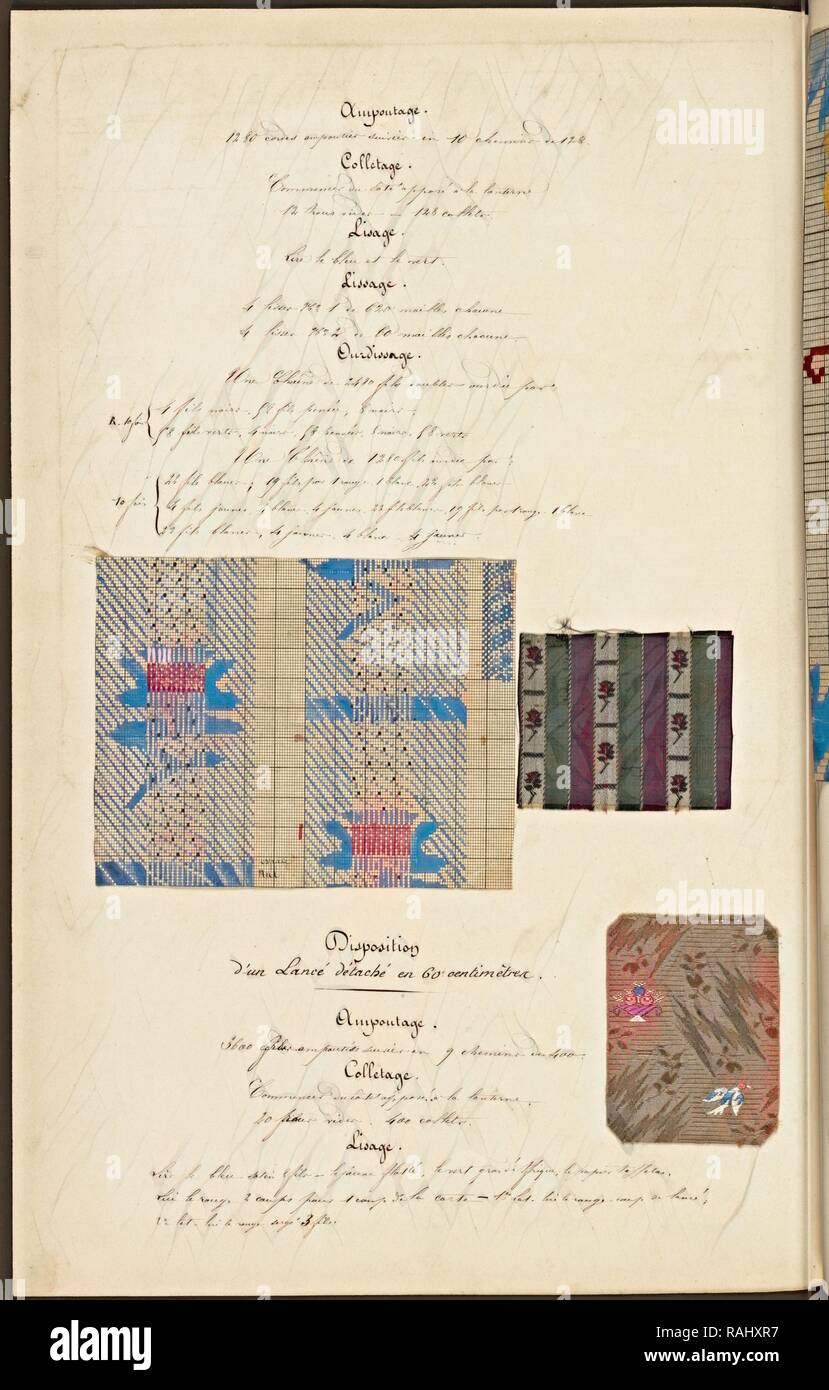 Ampoutage.
1280 cordes ampoutées suivies en 10 chemins de 128.
Colletage.
Commencer du côté opposé à la lanterne
12 trous vides — 128 collets.
Lisage.
Lire le bleu et le vert.
Lissage.
4 lisses Nº 1 de 620 mailles chacune
4 lisses Nº 2 de 60 mailles chacune
Ourdissage.
Une Chaîne de 2480 fils doubles ourdie par
10 fois
4 fils noirs, 58 fils pensée, 8 noirs,
58 fils verts, 4 noirs, 58 pensée, 8 noirs, 58 verts
Une Chaîne de 1280 fils ourdie par :
10 fois
22 fils blancs ; 19 fils par 1 rouge 1 blanc 22 fils blancs
4 fils jaunes 4 blancs 4 jaunes 22 fils blancs 19 fils par 1 rouge 1 blanc
22 fils blancs, 4 jaunes 4 blancs 4 jaunes
Disposition
d'un Lancé détaché en 60 centimètres.
Ampoutage.
3600 ampoutés suivies en 9 chemins de 400
Colletage.
Commencer du côté opposé à la lanterne.
20 vides. 400 collets.
Lisage.
Lire le bleu satin le jaune le vert gros d'Afrique, le papier taffetas.
Lire le rouge 2 coups pour 1 coup de la carte — 1er lat. lire le rouge coup de lancé,
2e lat. lire le rouge sergé 3 fils.
alamy
alamy
alamy stock photo
RAHXR7
www.alamy.com